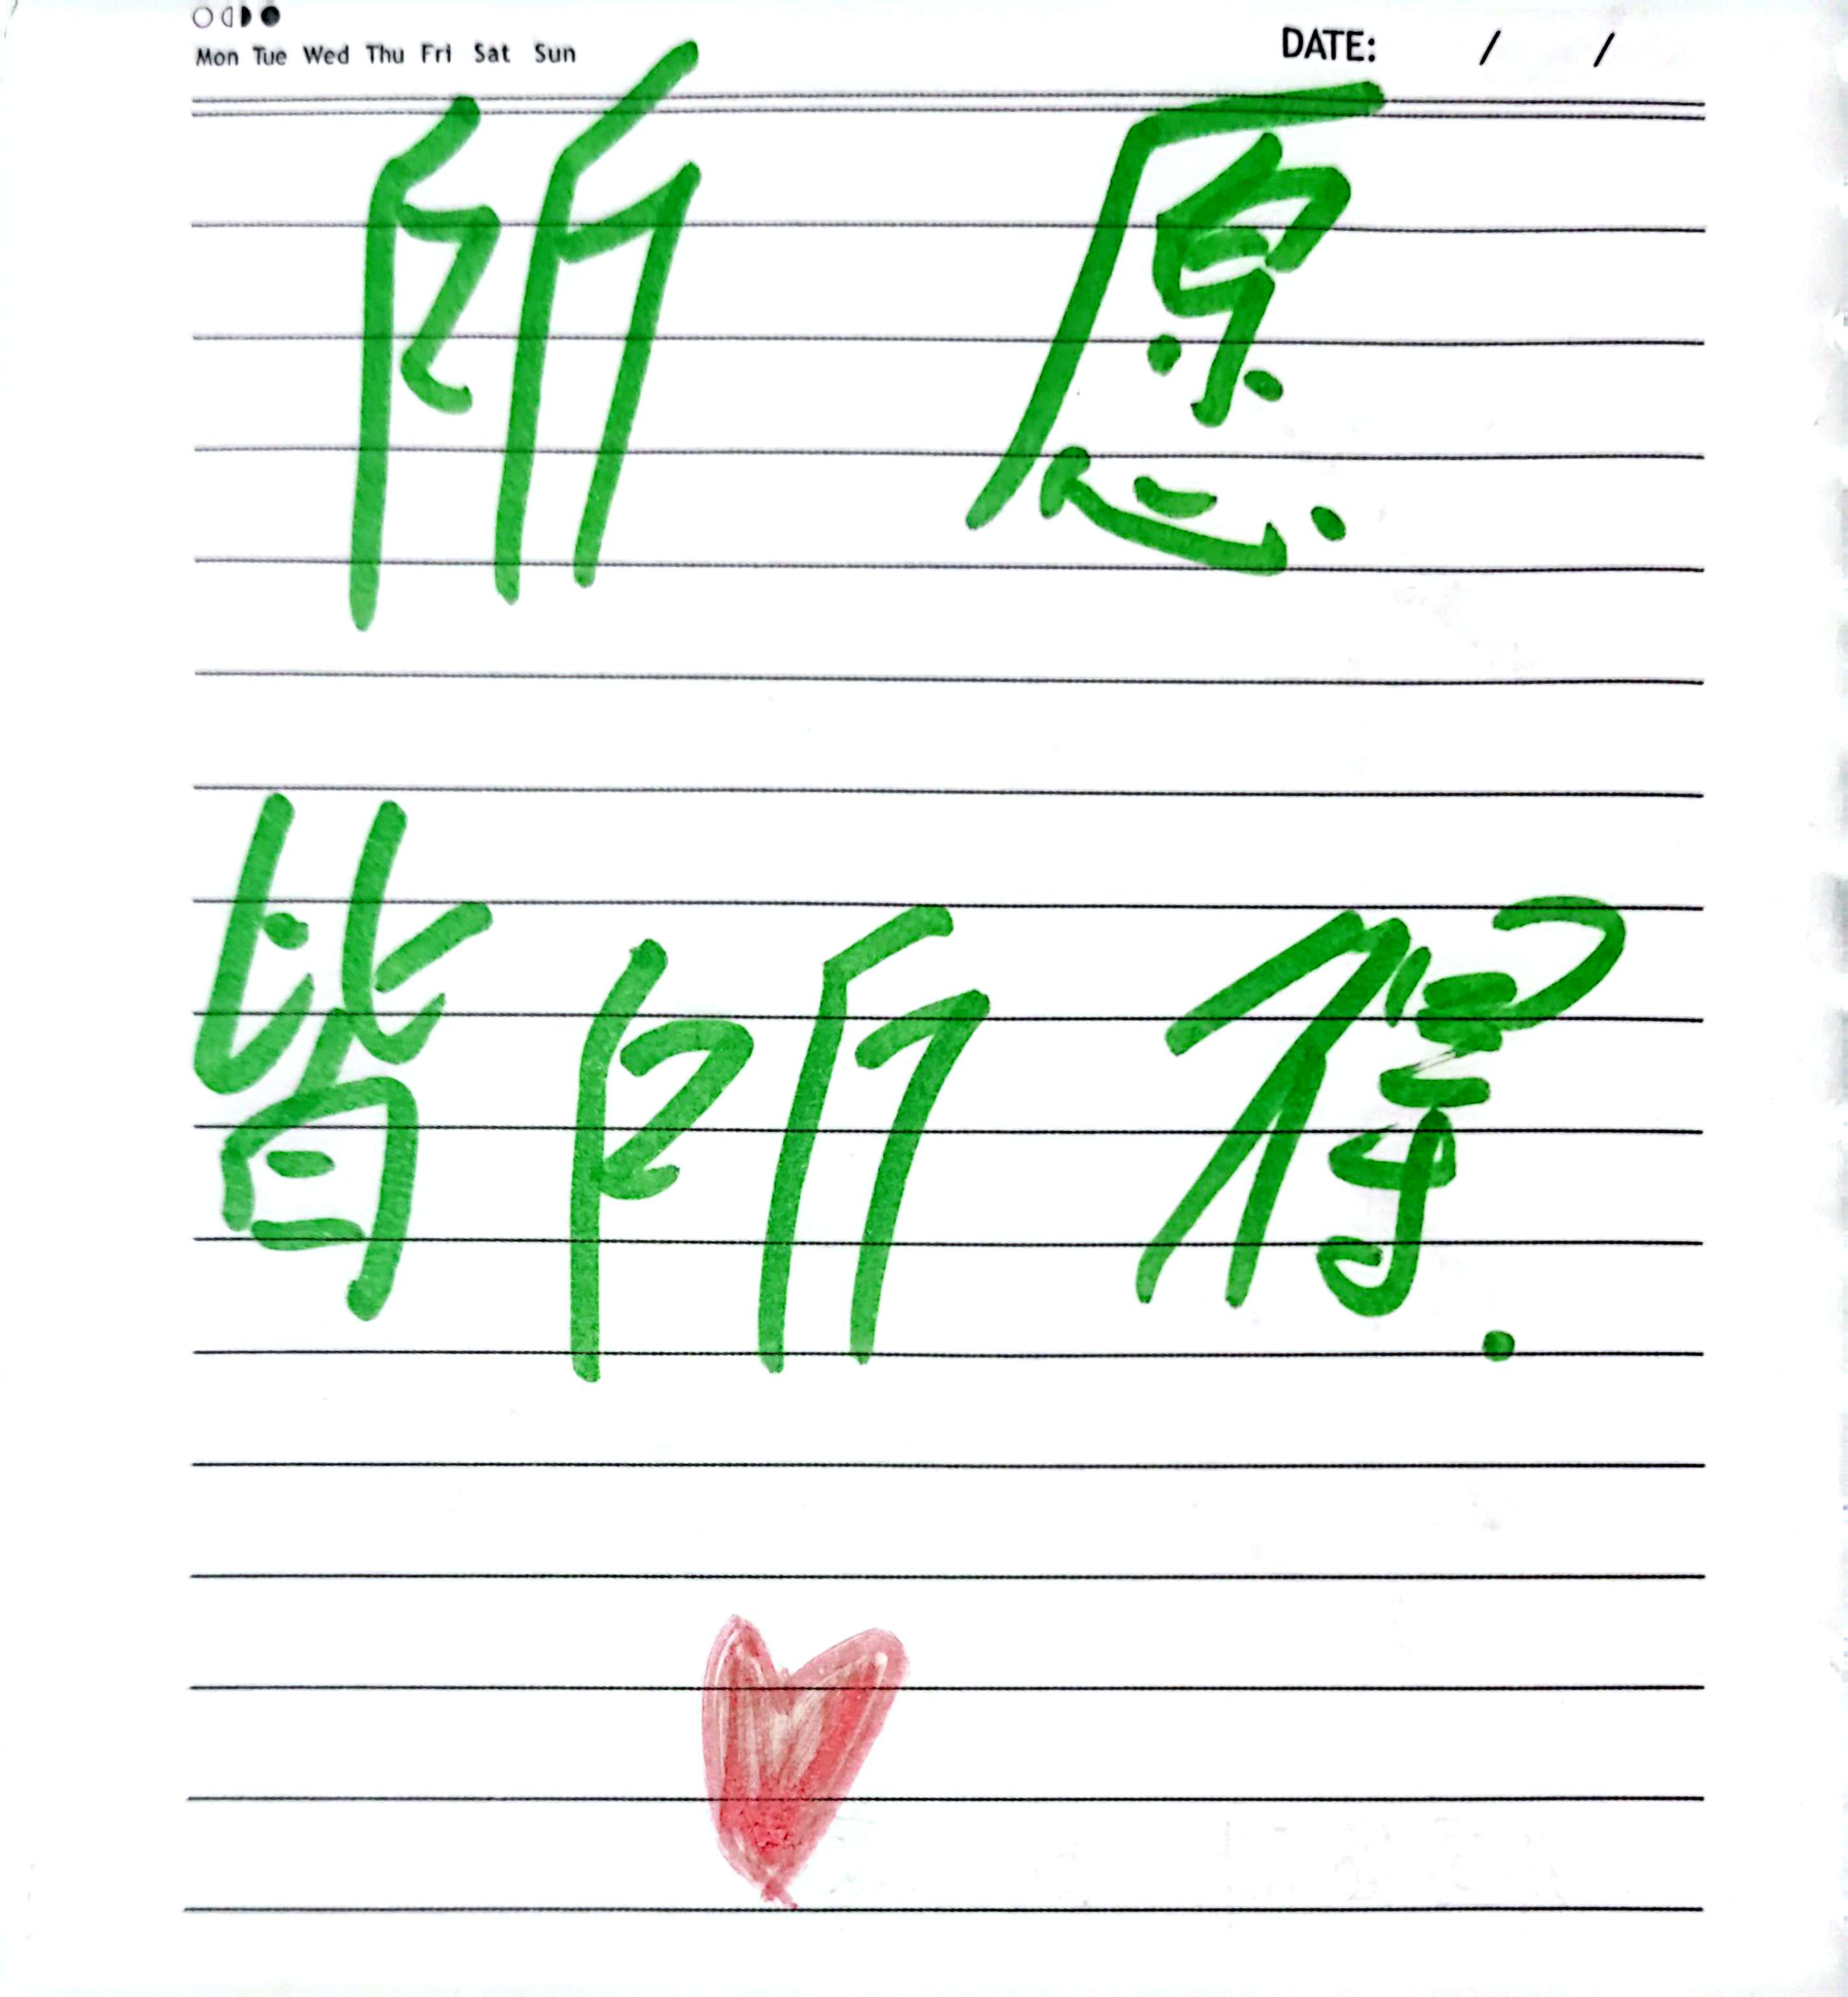 Mon Tue Wed Thu Fri Sat Sun DATE: / /
所愿
皆所得.